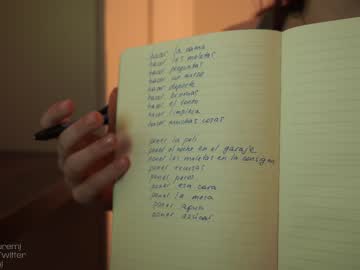 hacer la cama
hacer las maletas
hacer preguntas
hacer un curso
hacer deporte
hacer bromas
hacer el tonto
hacer limpieza
hacer muchas cosas
poner la peli
poner el coche en el garaje
poner las maletas en la consigna
poner excusas
poner peros
poner esa cara
poner la mesa
poner azúcar
uremj
Twitter